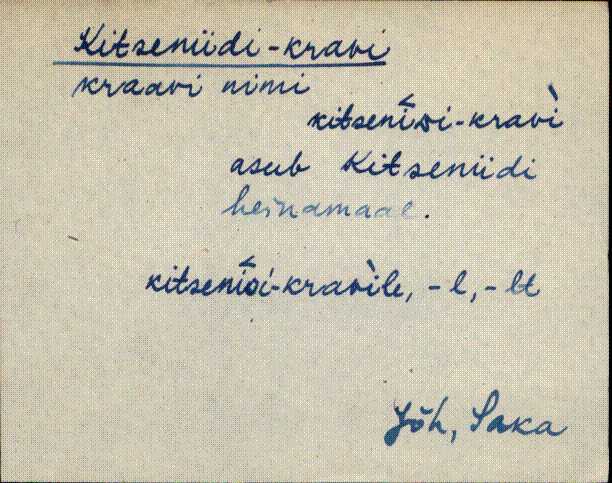 Kitseniidi-kravi
kraavi nimi
kitsenìᴅi-kravì
asub Kitseniidi
heinamaal.
kitsenìᴅi-kravìle, -l, -lt
Jõh, Saka